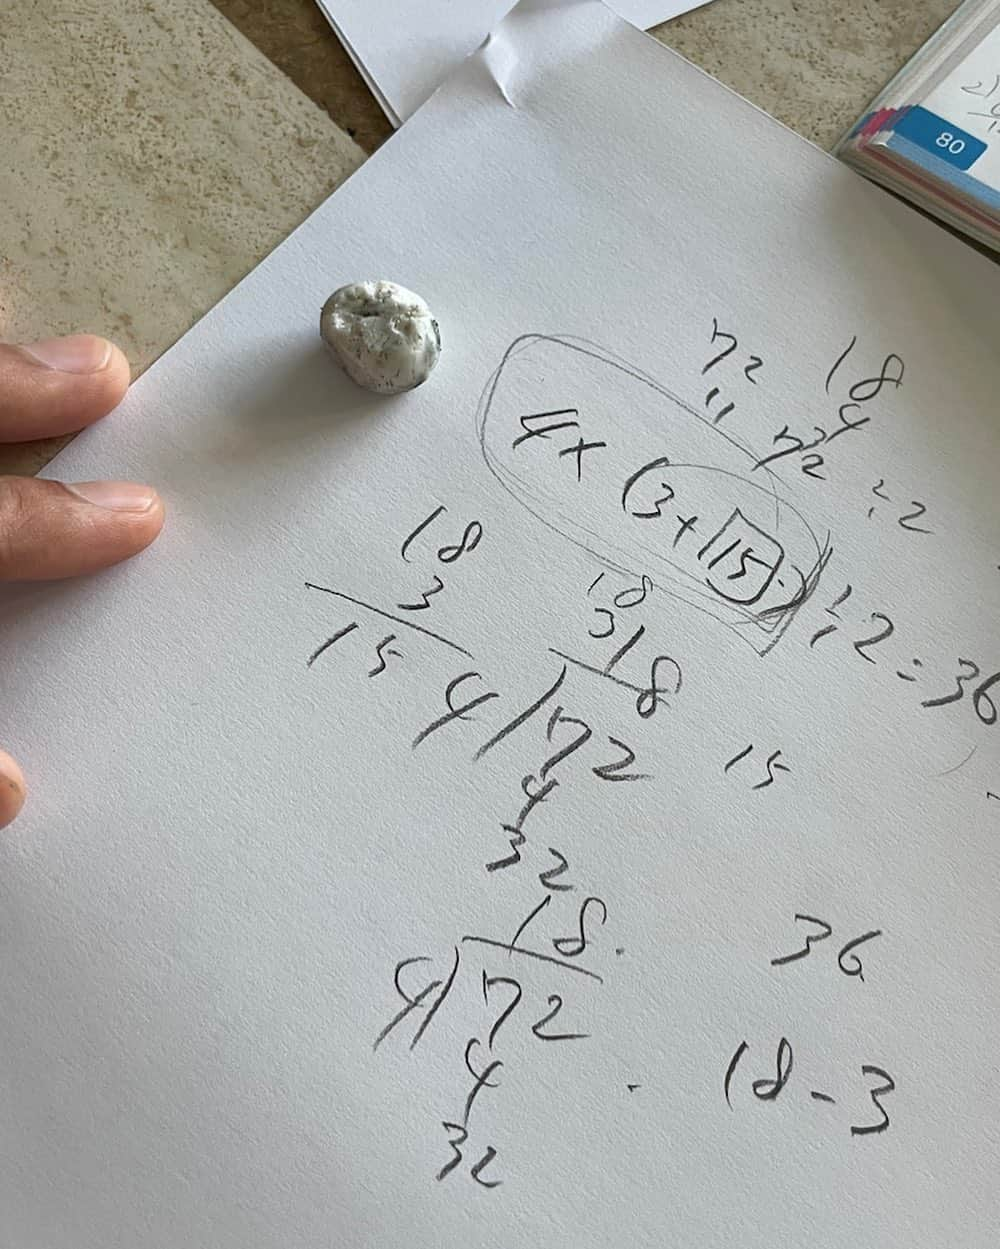 80
72 18
4
" 72 ÷2
4× (3+15) ÷2=36
18
3
15
18
3
18
4)72
4
32
15
18.
4)72
4
32
36
18-3